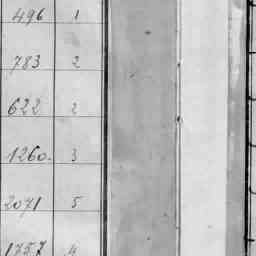 496 1
783 2
622 2
1260. 3
2071 5
1757 4